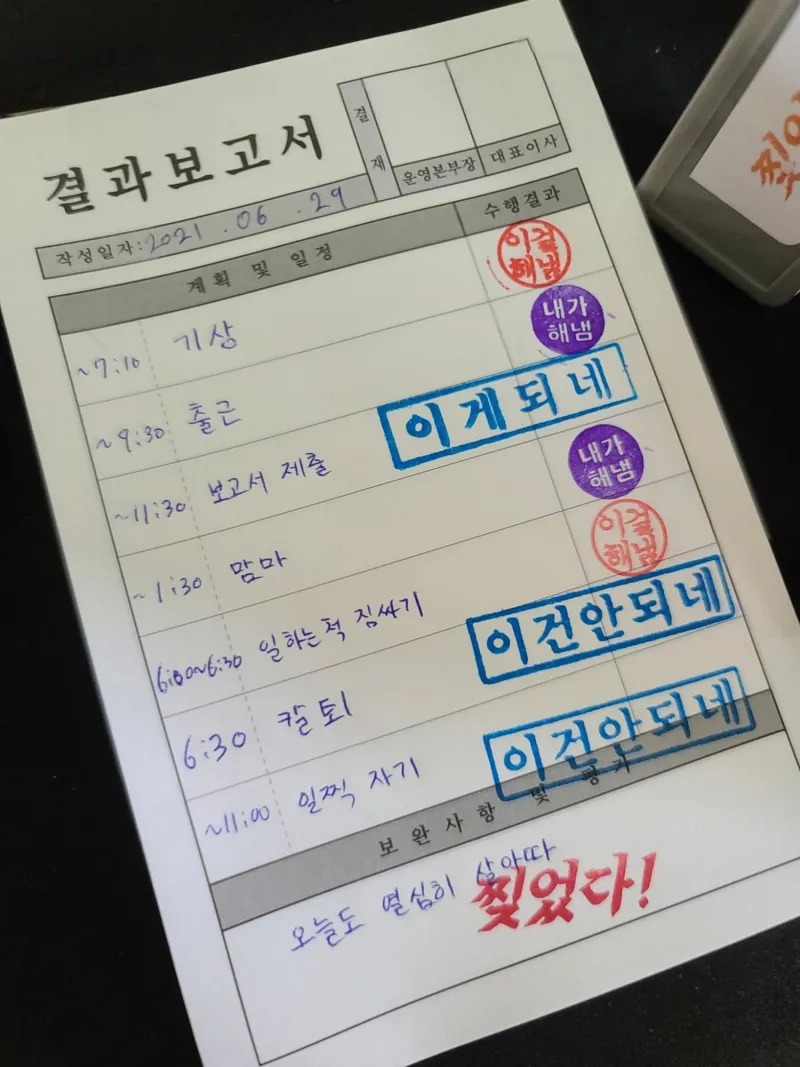 결재
결과보고서
운영본부장 대표이사
작성일자: 2021.06.29
계획 및 일정 수행결과
~7:10 기상 이걸해냄
~9:30 출근 내가해냄
~11:30 보고서 제출 이게되네
~1:30 맘마 내가해냄
6:00~6:30 일하는척 짐싸기 이걸해냄
6:30 칼퇴 이건안되네
~11:00 일찍 자기 이건안되네
보완사항 및 평가
오늘도 열심히 살아따
찢었다!